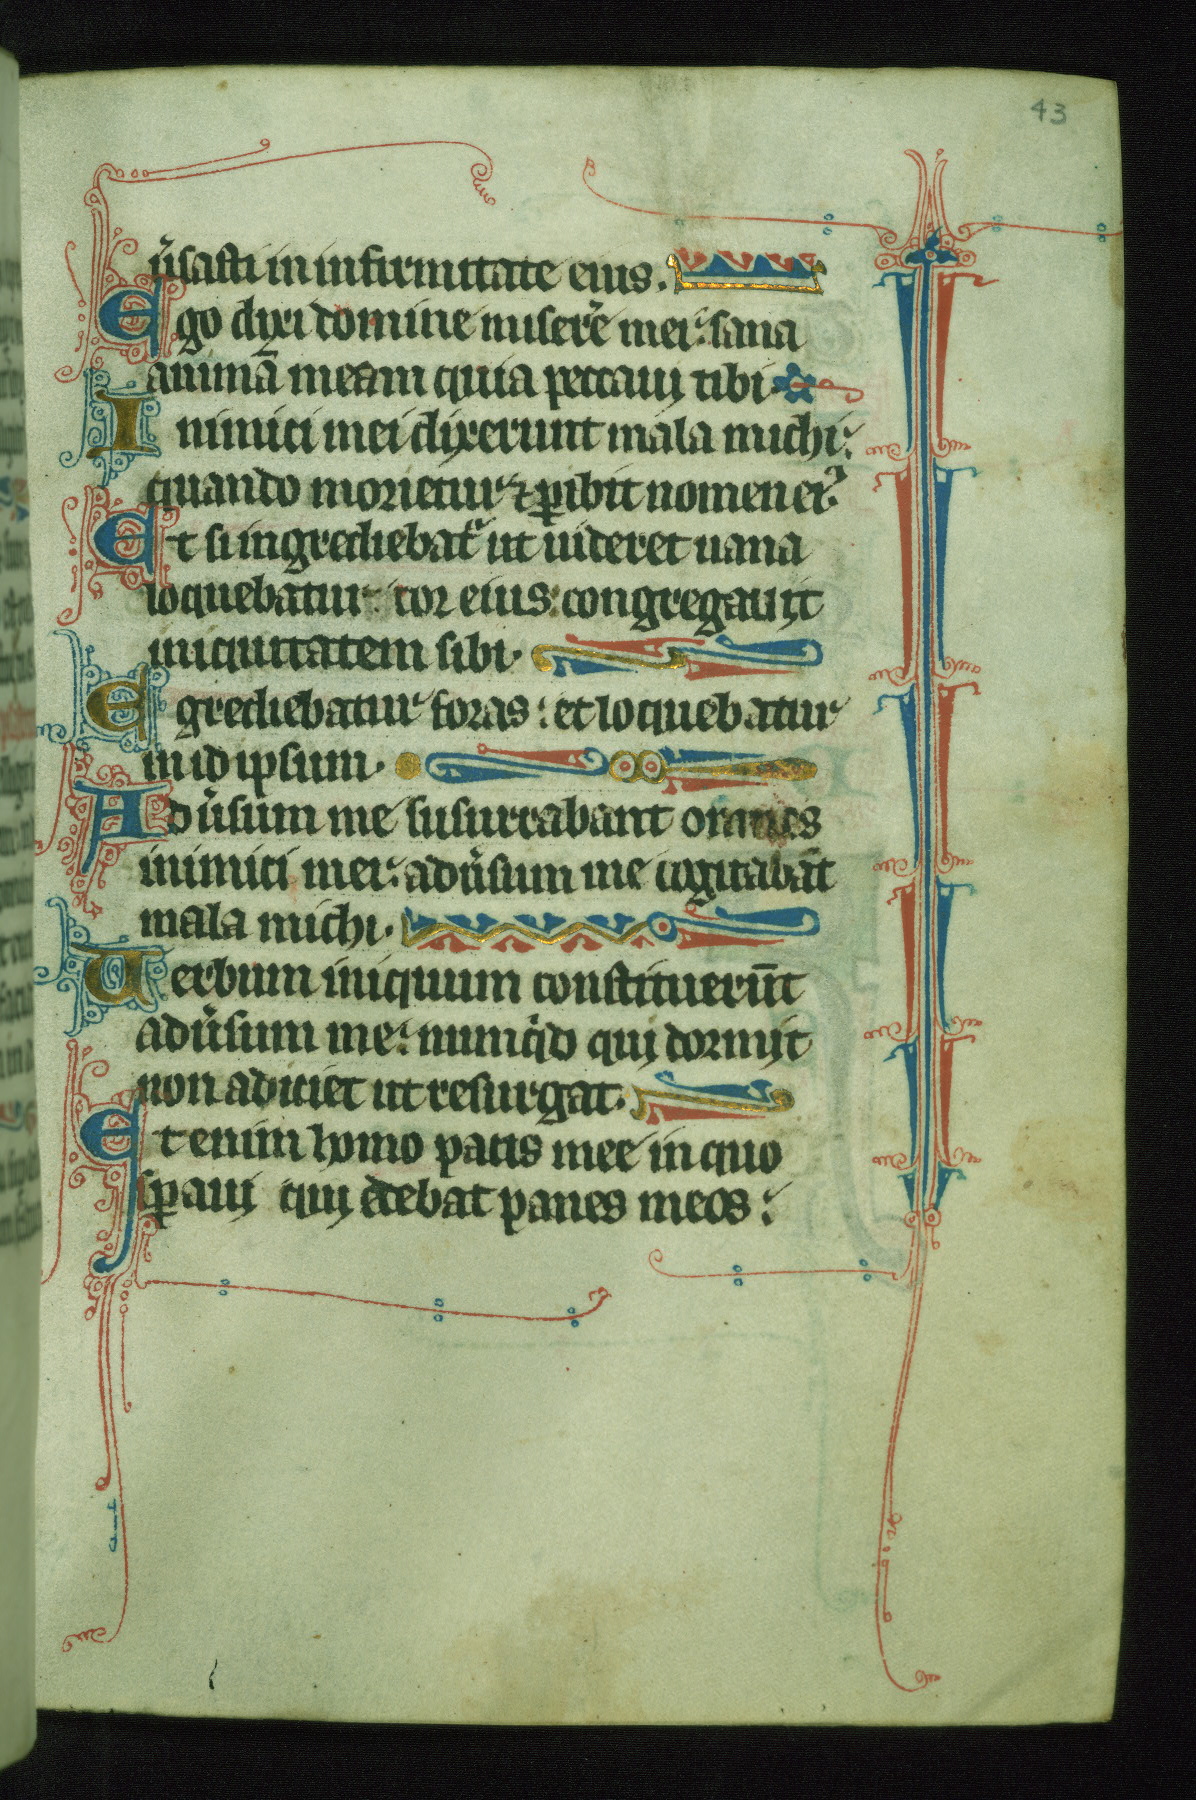 43
ũsasti in infirmitate eius.
Ego dixi domine miserẽ mei: sana
animã meam quia peccauij tibi.
Inimici mei dixerunt mala michi:
quando morietur ⁊ ꝑibit nomen ei᾽
Et si ingrediebat᾽ ut uideret uana
loquebatur: cor eius: congregauit
iniquitatem sibi.
Egrediebatur foras: et loquebatur
in id ipsum.
Adũsum me susurrabant omnes
inimici mei: adũsum me cogitabãt
mala michi.
Uerbum iniquum constituerũt
adũsum me: numqͥd qui dormijt
non adiciet ut resurgat.
Etenim homo pacis mee in quo
sꝑauij quij edebat panes meos: